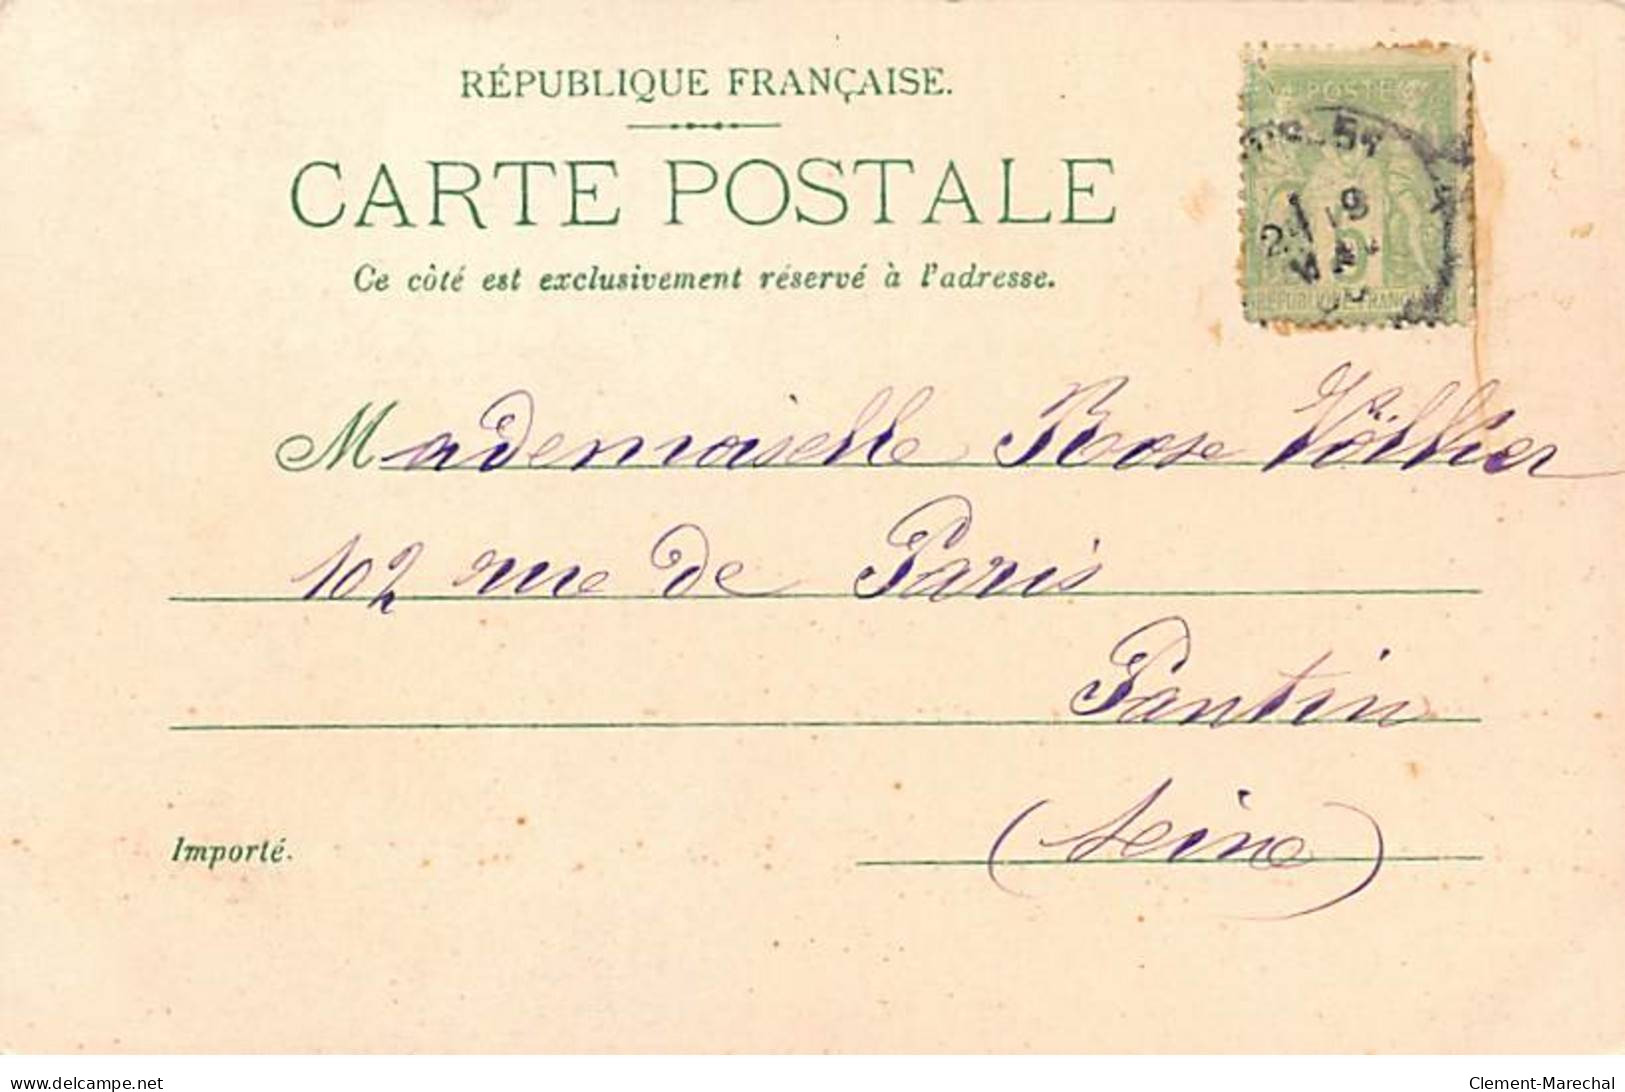 RÉPUBLIQUE FRANÇAISE.
CARTE POSTALE
Ce côté est exclusivement réservé à l'adresse.
POSTE
RÉPUBLIQUE FRANÇAISE
Mademoiselle Rose
102 rue de Paris
Pantin
(Seine)
Importé.
www.delcampe.net
Clement-Marechal